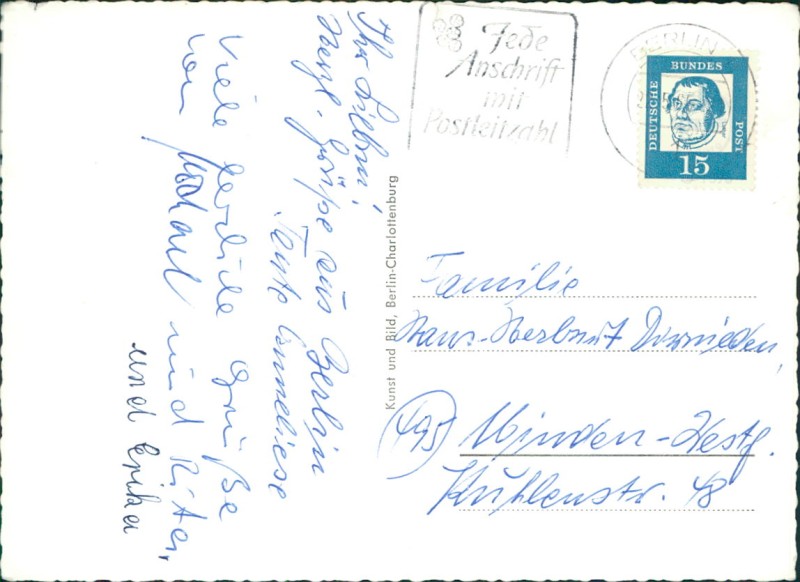 Ihr Lieben!
Herzl. Grüße aus Berlin
Tante Anneliese
Viele herzliche Grüße
von und
und Erika
Kunst und Bild, Berlin-Charlottenburg
Jede
Anschrift
mit
Postleitzahl
BERLIN
DEUTSCHE BUNDES POST
15
Familie
Hans-Herbert
(495) Minden-Westf.
Kuhlenstr. 48